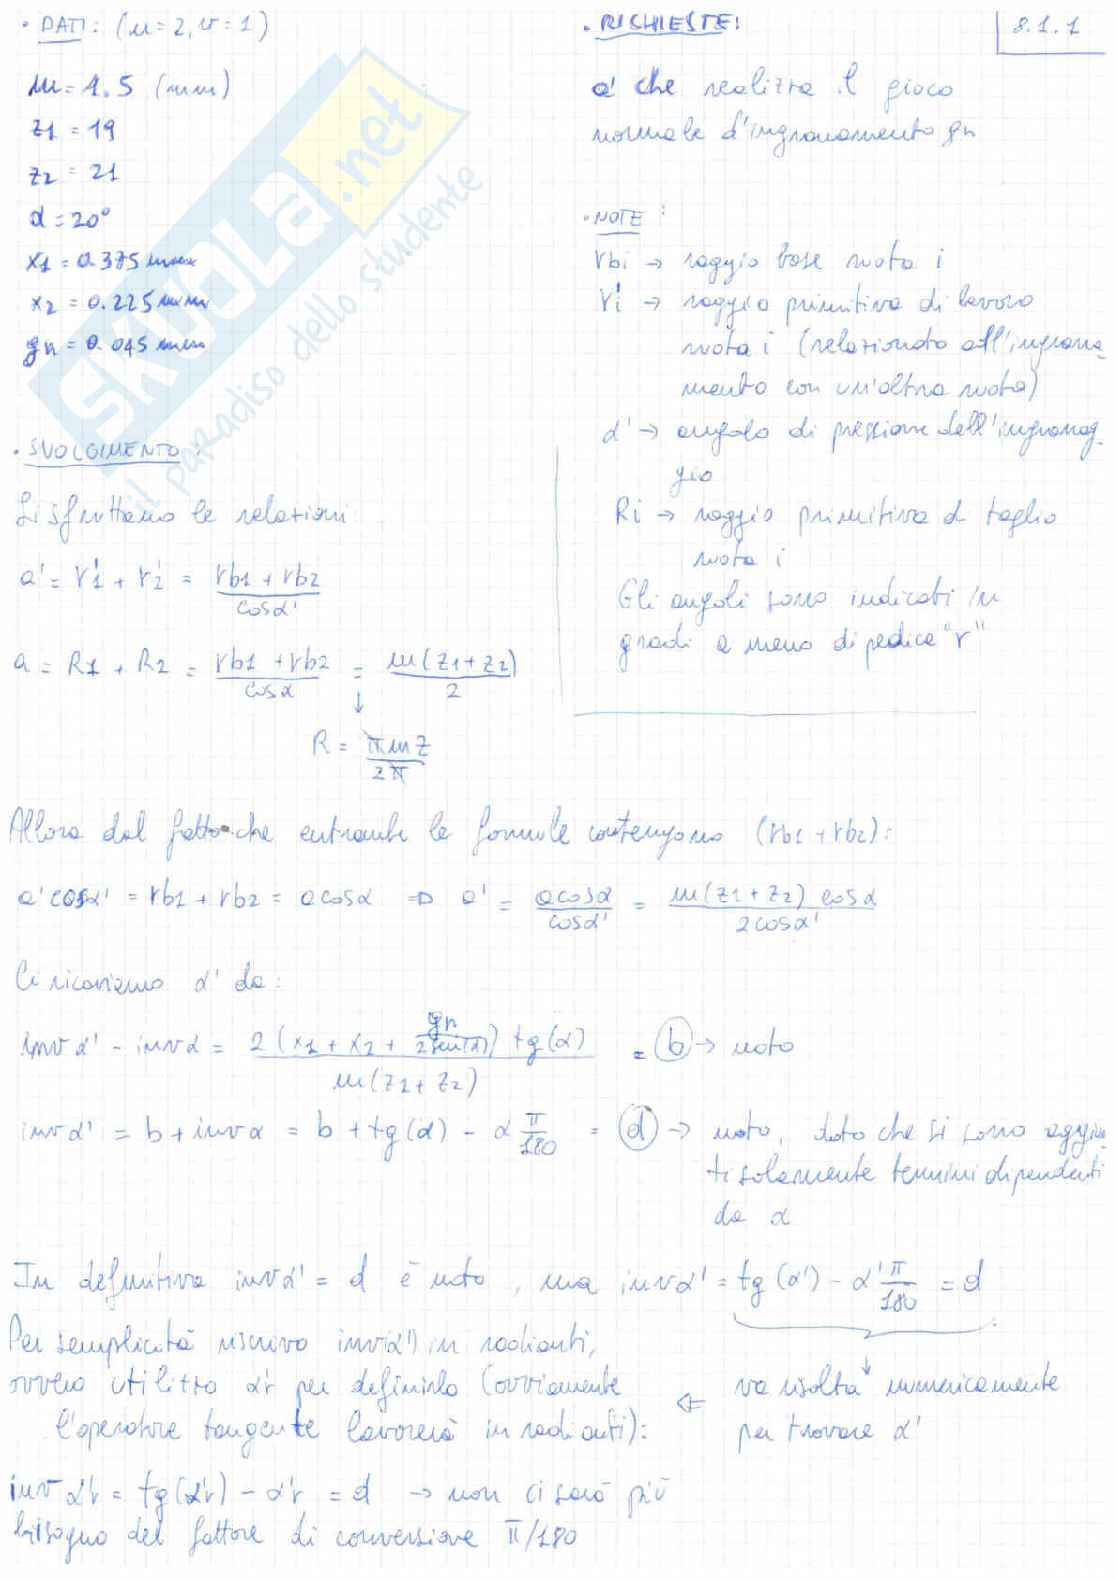 • DATI: (u=2, v=1)
m = 1.5 (mm)
z1 = 19
z2 = 21
α = 20°
x1 = 0.375 mm
x2 = 0.225 mm
gn = 0.045 mm
• RICHIESTE:
8.1.1
a' che realizza il gioco
normale d'ingranamento gn
• NOTE:
rbi → raggio base ruota i
r'i → raggio primitiva di lavoro
ruota i (relazionato all'ingrana-
mento con un'altra ruota)
α' → angolo di pressione dell'ingranag-
gio
Ri → raggio primitiva di taglio
ruota i
Gli angoli sono indicati in
gradi a meno di pedice "r"
SKUOLA.net
il paradiso dello studente
• SVOLGIMENTO:
Si sfruttano le relazioni
a' = r'1 + r'2 = (rb1 + rb2)/cosα'
a = R1 + R2 = (rb1 + rb2)/cosα = m(z1+z2)/2
↓
R = πmz/2π
Allora dal fatto che entrambe le formule contengono (rb1 + rb2):
a'cosα' = rb1 + rb2 = a cosα ⇒ a' = a cosα/cosα' = m(z1+z2) cosα/2cosα'
Ci ricaviamo α' da:
invα' - invα = 2(x1 + x2 + gn/2sen(α)) tg(α)/m(z1+z2) = b → noto
invα' = b + invα = b + tg(α) - α π/180 = d → noto, dato che si sono aggiun-
ti solamente termini dipendenti
da α
In definitiva invα' = d è noto, ma invα' = tg(α') - α' π/180 = d
Per semplicità riscrivo inv(α') in radianti,
ovvero utilizzo α'r per definirlo (ovviamente
l'operatore tangente lavorerà in radianti):
⇐ va risolta numericamente
per trovare α'
invα'r = tg(α'r) - α'r = d → non ci sarà più
bisogno del fattore di conversione π/180